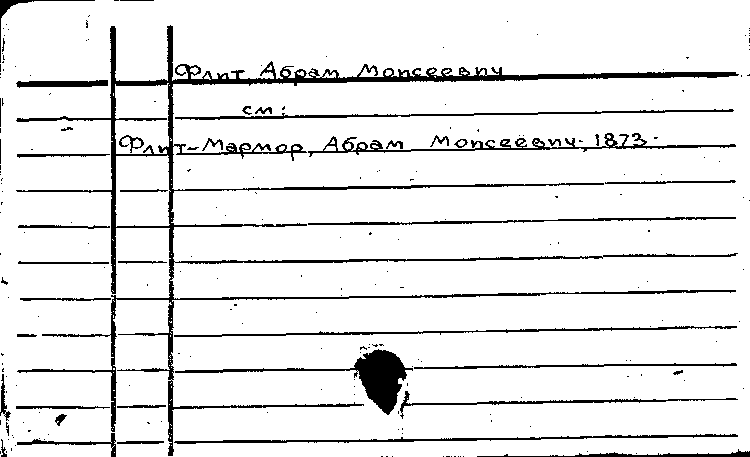 Флит, Абрам Моисеевич
см:
Флит-Мармор, Абрам Моисеевич, 1873-